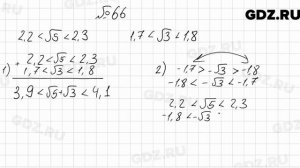 GDZ.RU
№66
2,2 < √5 < 2,3
1,7 < √3 < 1,8
1) + 2,2 < √5 < 2,3
1,7 < √3 < 1,8
3,9 < √5 + √3 < 4,1
2) -1,7 > -√3 > -1,8
-1,8 < -√3 < -1,7
2,2 < √5 < 2,3
-1,8 < -√3
GDZ.RU